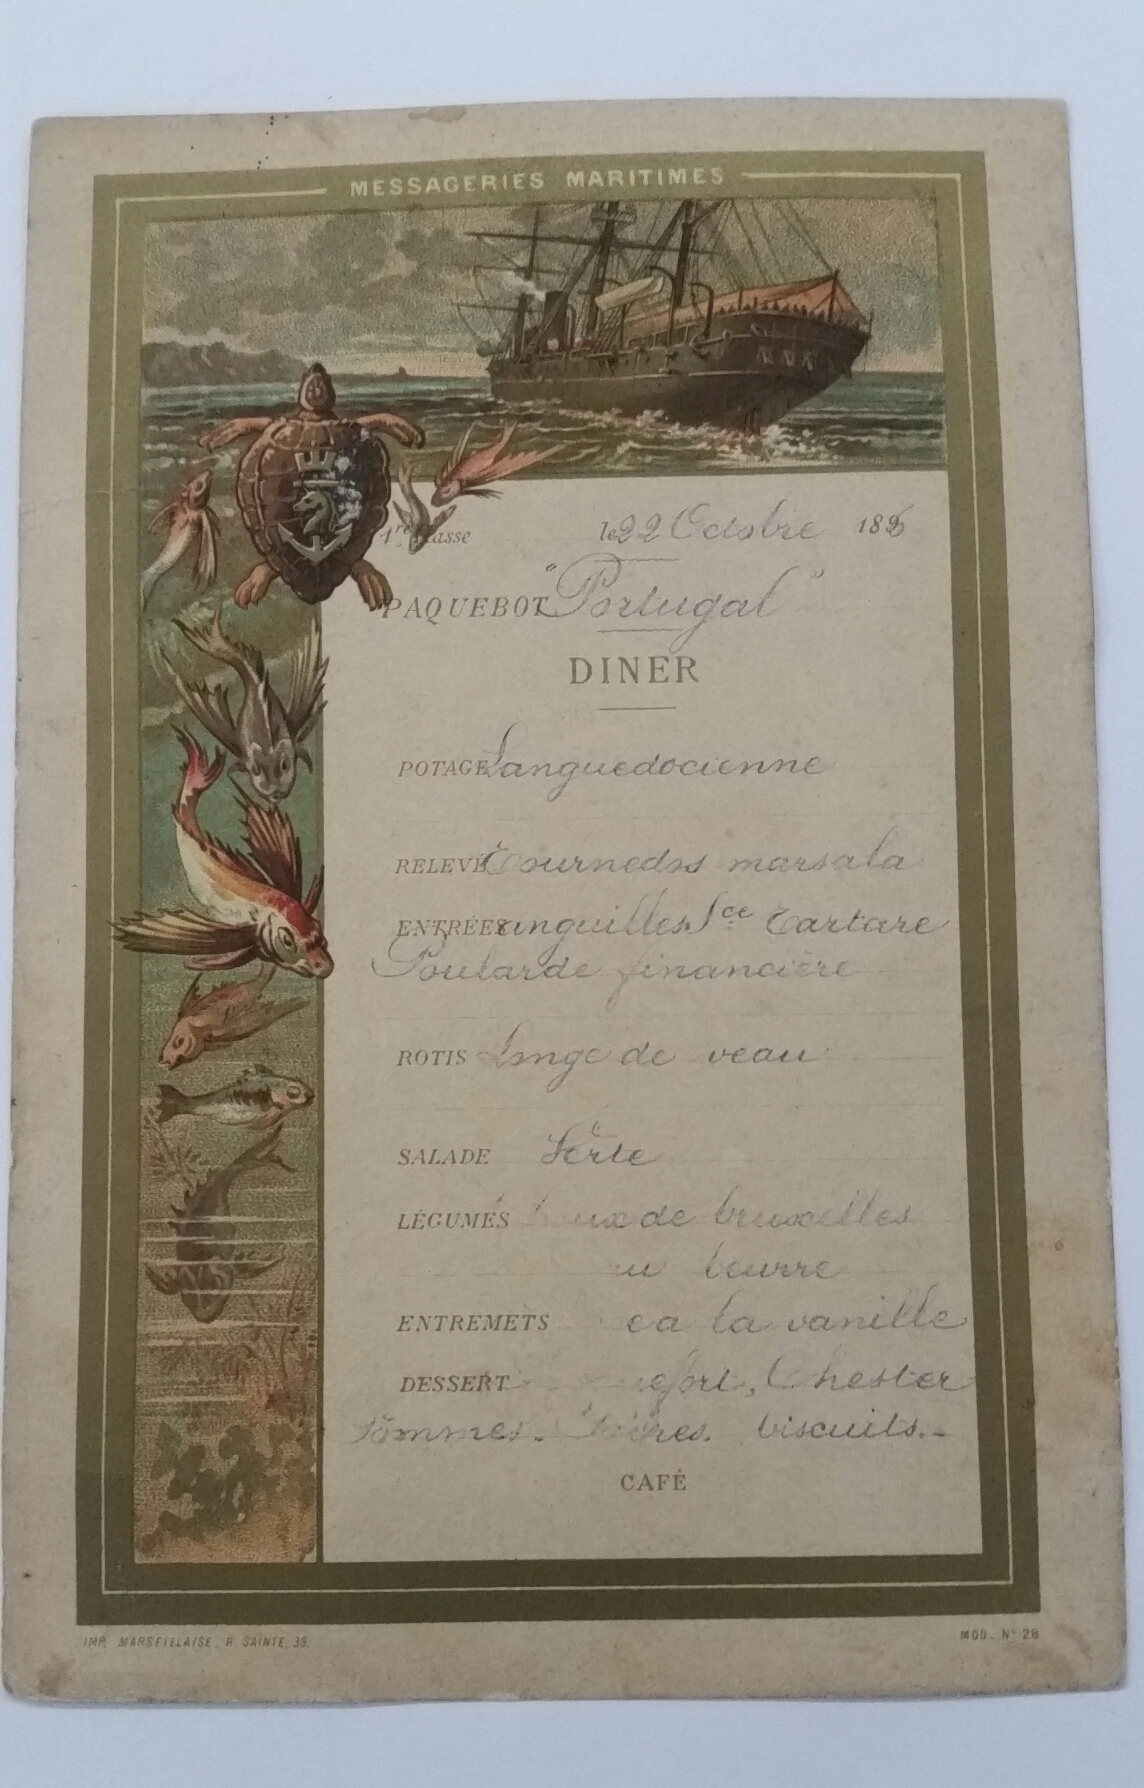 MESSAGERIES MARITIMES
1re Classe
le 22 Octobre 189
PAQUEBOT "Portugal"
DINER
POTAGE Languedocienne
RELEVÉ Tournedos marsala
ENTRÉES anguilles Sce Tartare
Poularde financière
ROTIS Longe de veau
SALADE Verte
LÉGUMES ux de bruxelles
u beurre
ENTREMETS la vanille
DESSERT Chester
Pommes. biscuits.-
CAFÉ
IMP. MARSEILLAISE, R. SAINTE, 39.
MOD. N° 28